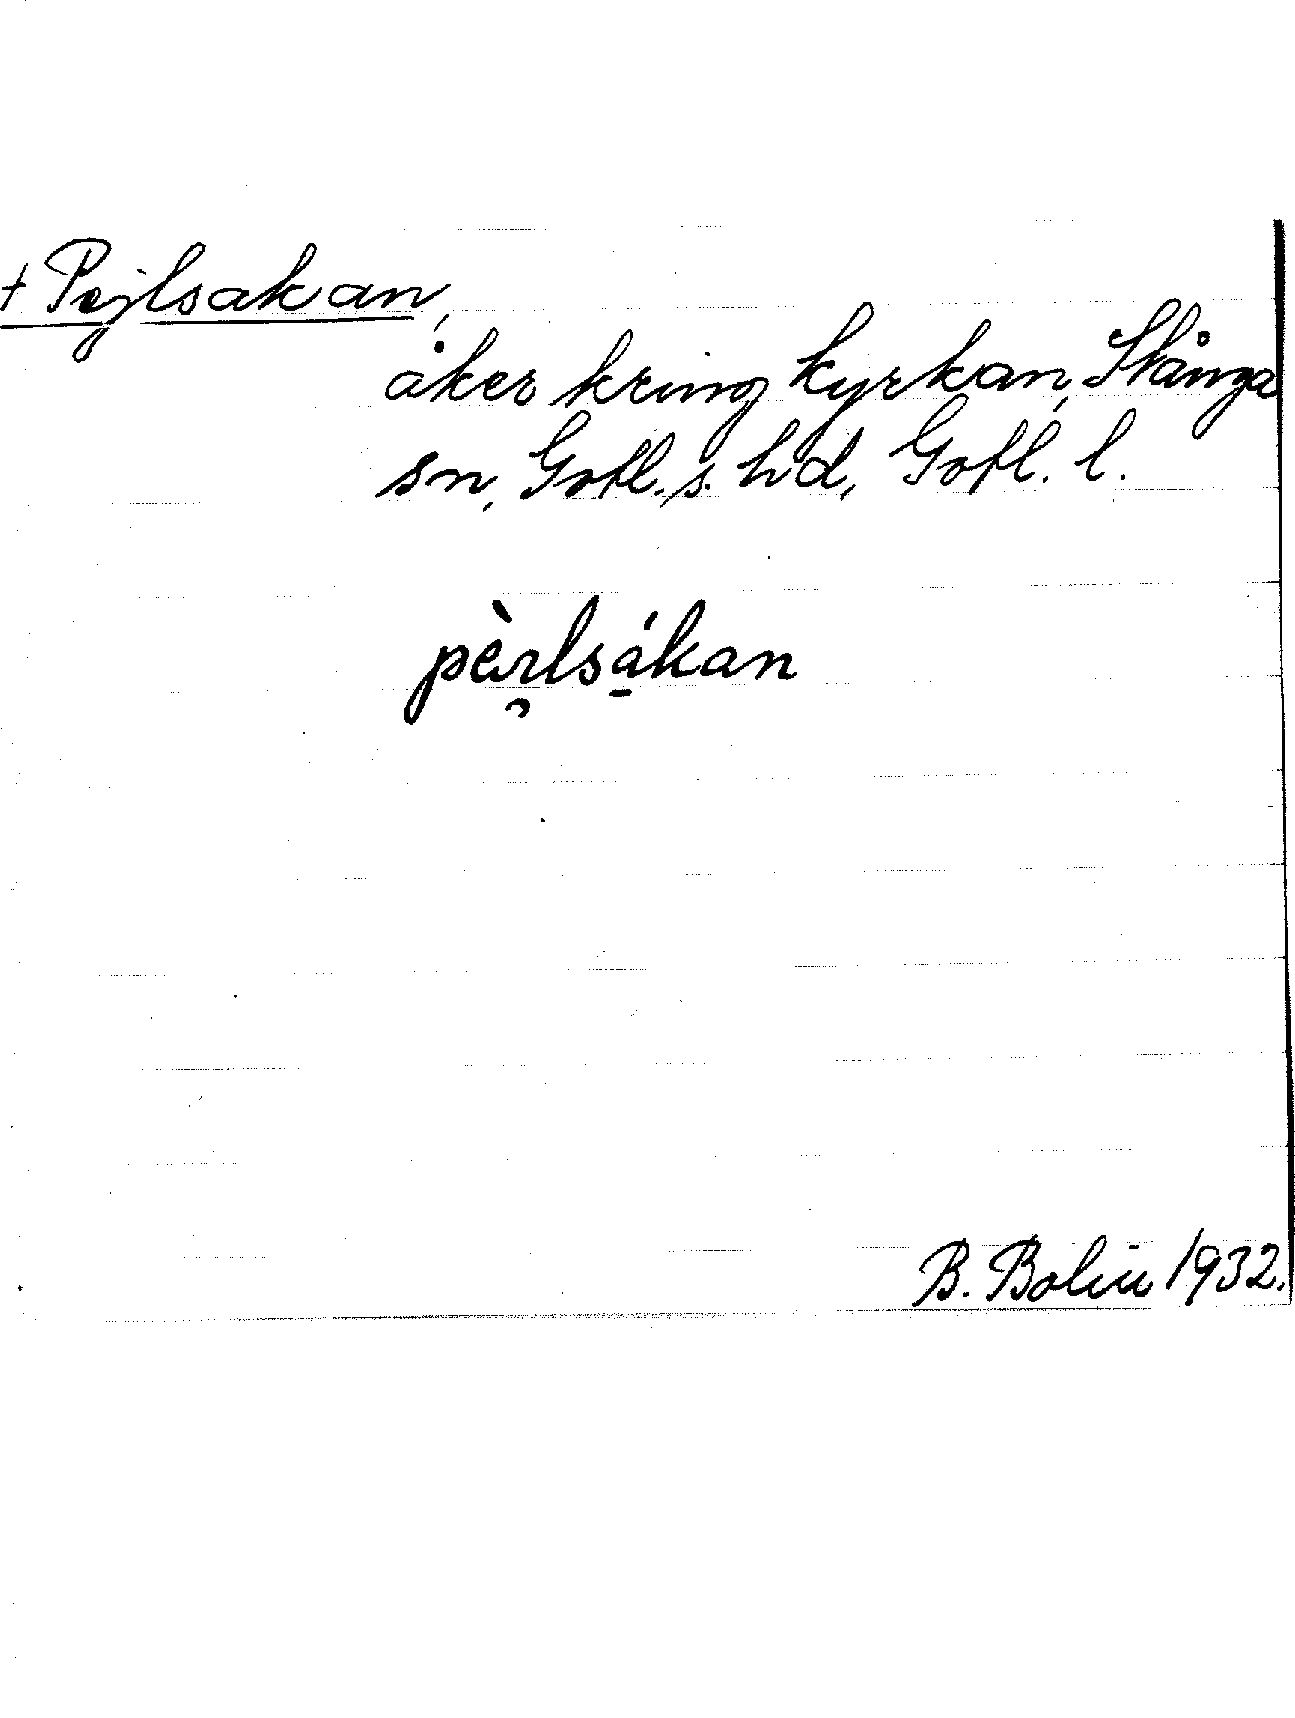 + Pejlsakan,
åker kring kyrkan, Stånga
sn, Gotl. s. hd, Gotl. l.
pèi̯lsá̱kan
B. Bolin 1932.